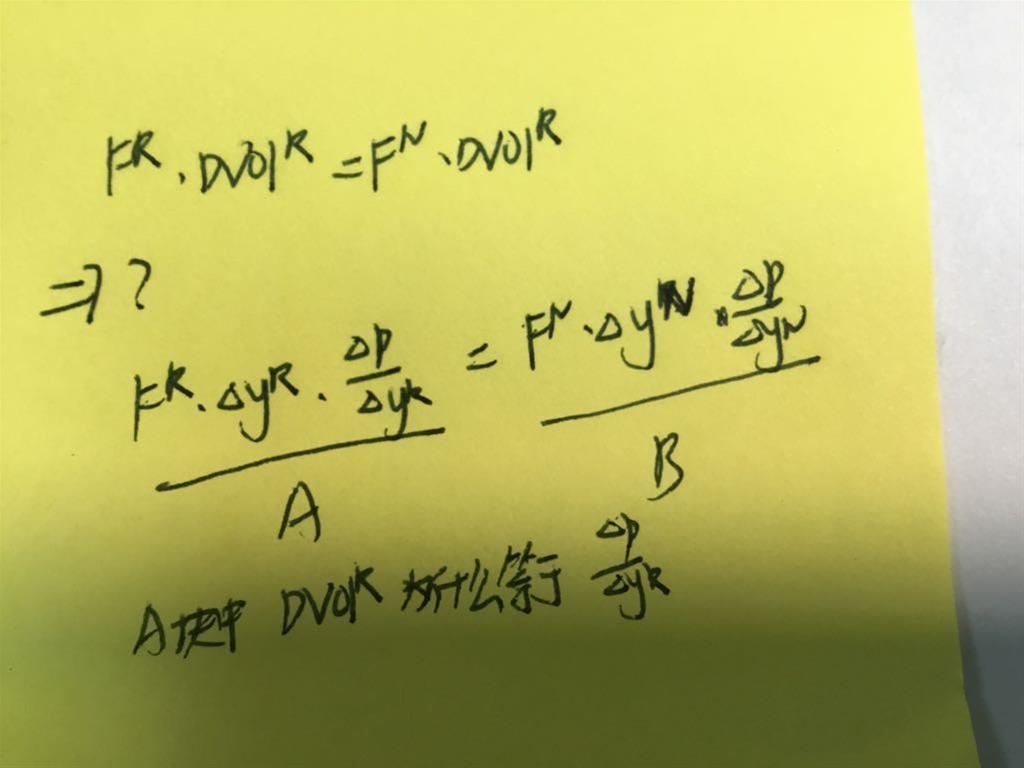 F^R · DV01^R = F^N · DV01^R
⇒ ?
F^R · Δy^R · Δp/Δy^R = F^N · Δy^N · Δp/Δy^N
A B
A块中 DV01^R 为什么等于 Δp/Δy^R